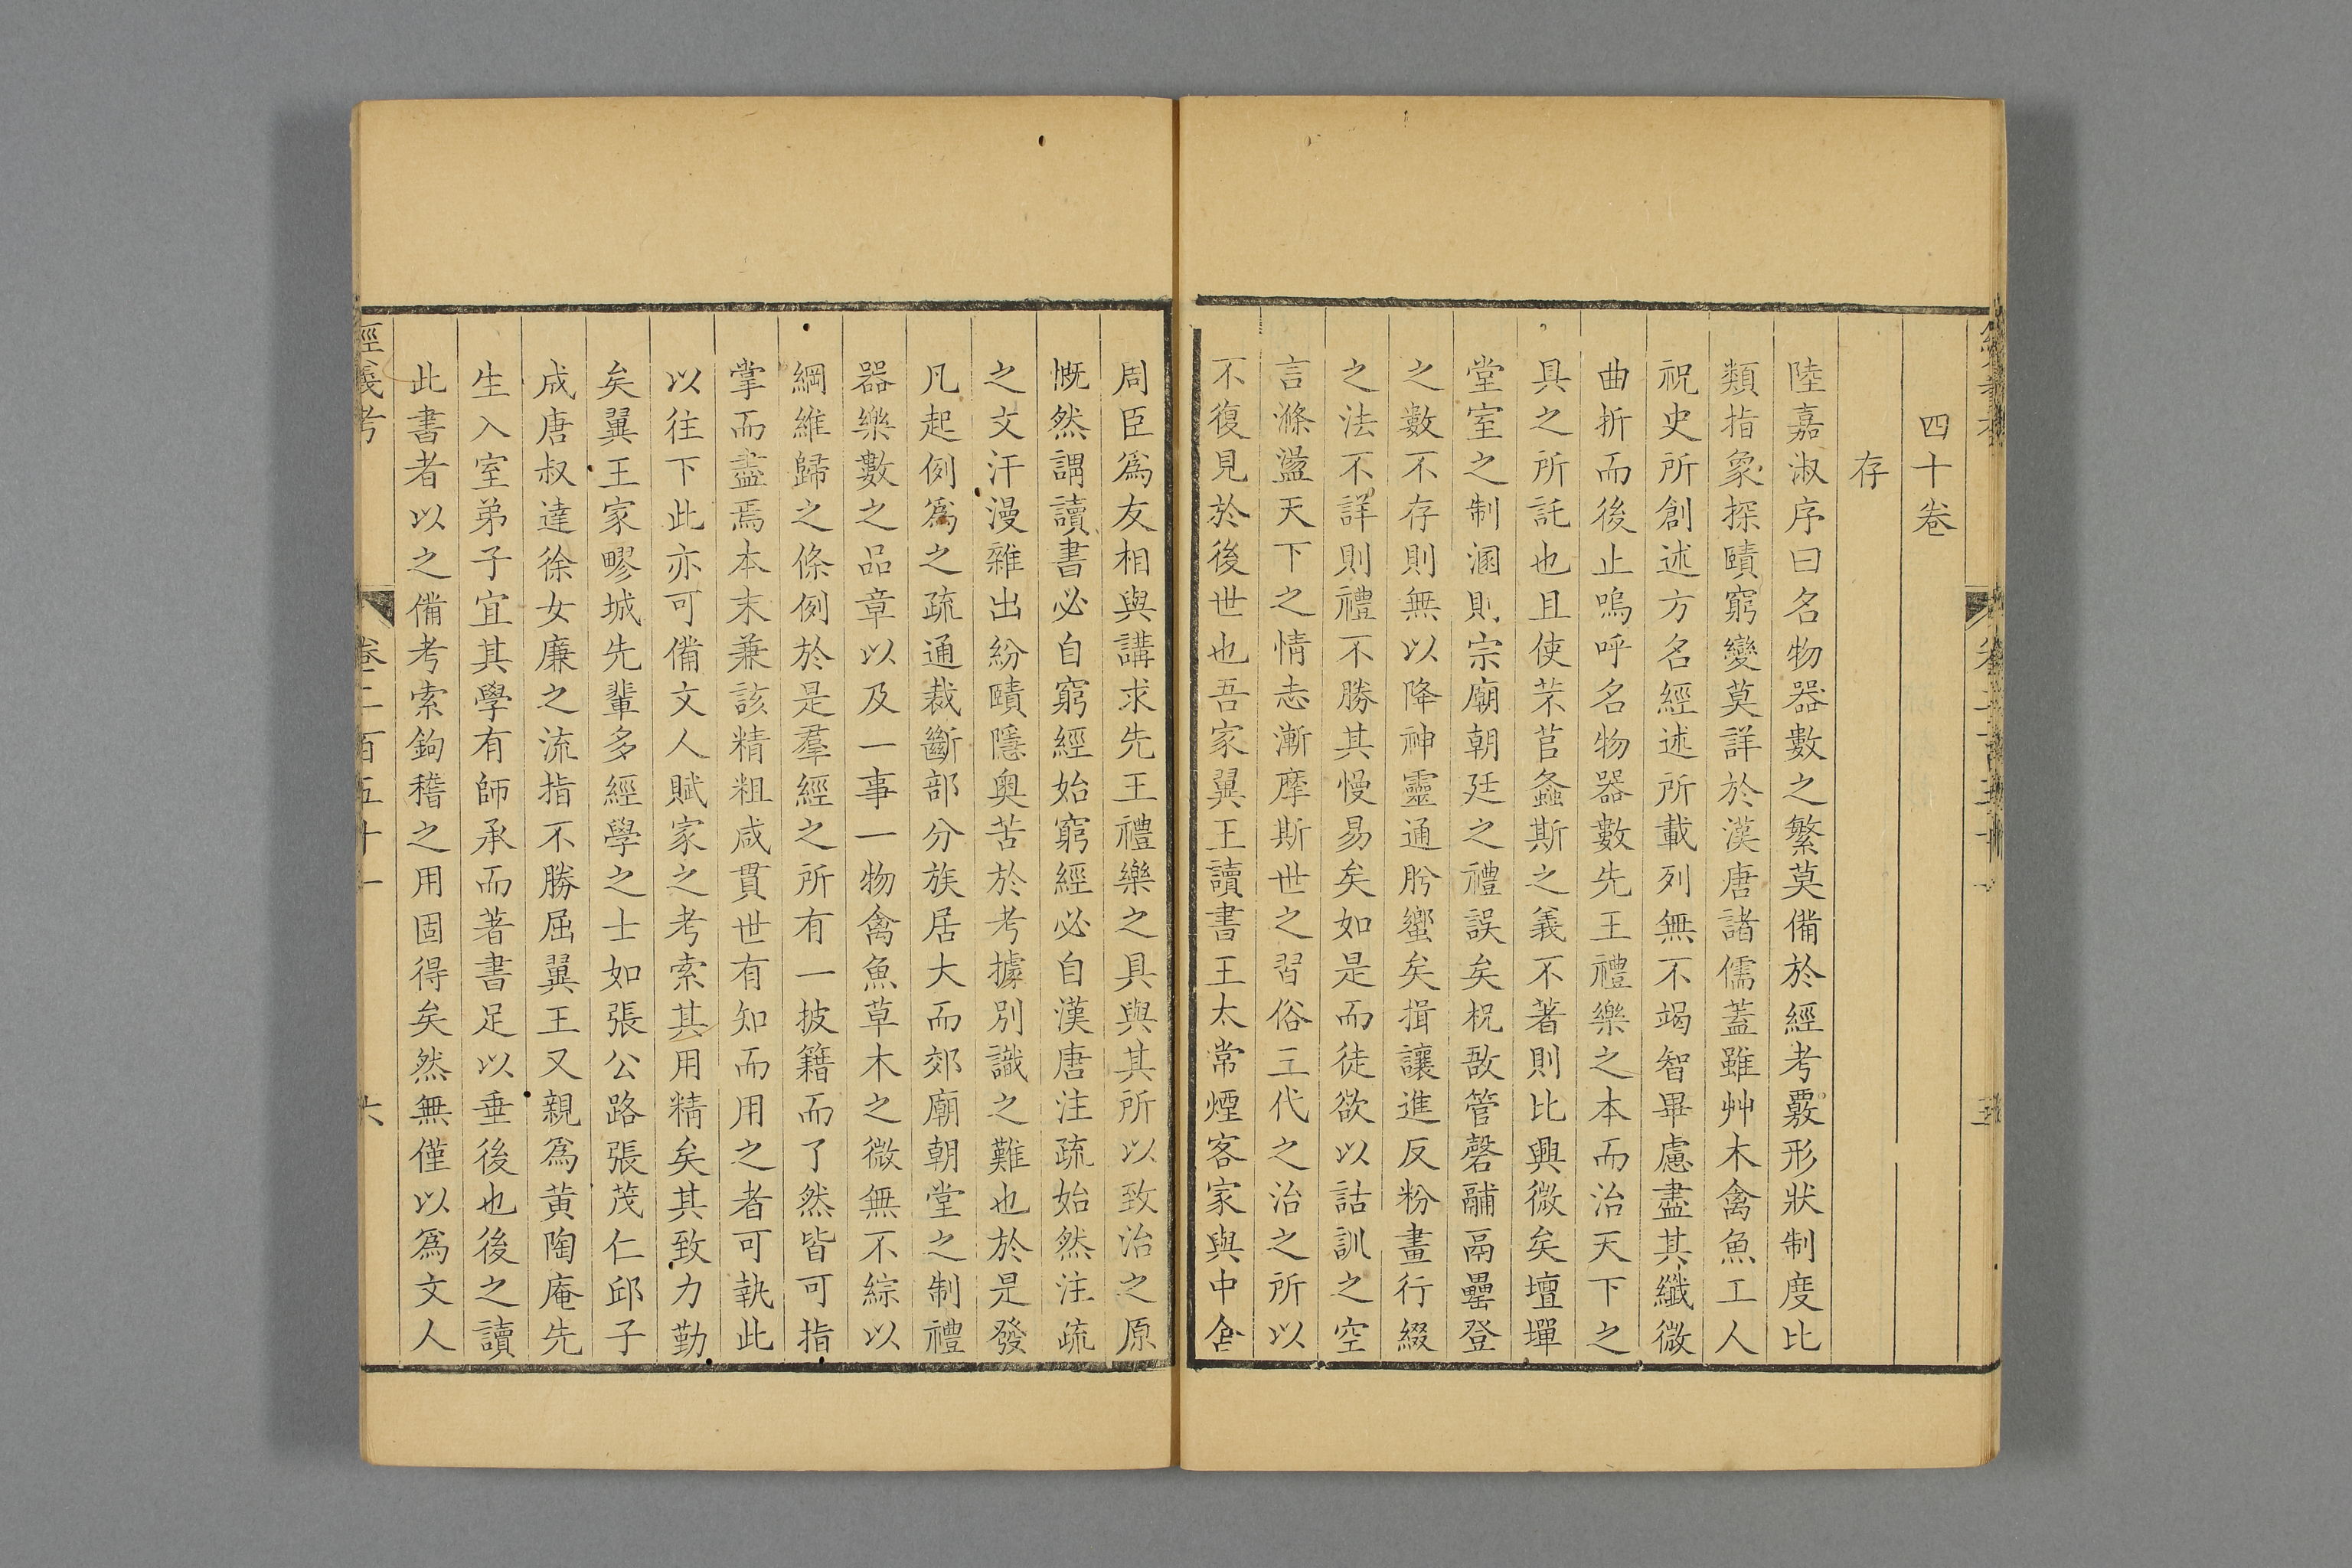 四十卷
存
陸嘉淑序曰名物器數之繁莫備於經考覈形狀制度比
類指象探賾窮變莫詳於漢唐諸儒蓋雖艸木禽魚工人
祝史所創述方名經述所載列無不竭智畢慮盡其纖微
曲折而後止嗚呼名物器數先王禮樂之本而治天下之
具之所託也且使芣苢螽斯之義不著則比興微矣壇墠
堂室之制溷則宗廟朝廷之禮誤矣柷敔管磬鬴鬲罍登
之數不存則無以降神靈通肸蠁矣揖讓進反粉畫行綴
之法不詳則禮不勝其慢易矣如是而徒欲以詁訓之空
言滌盪天下之情志漸摩斯世之習俗三代之治之所以
不復見於後世也吾家翼王讀書王太常煙客家與中舍
周臣爲友相與講求先王禮樂之具與其所以致治之原
慨然謂讀書必自窮經始窮經必自漢唐注疏始然注疏
之文汗漫雜出紛賾隱奥苦於考據別識之難也於是發
凡起例爲之疏通裁斷部分族居大而郊廟朝堂之制禮
器樂數之品章以及一事一物禽魚草木之微無不綜以
綱維歸之條例於是羣經之所有一披籍而了然皆可指
掌而盡焉本末兼該精粗咸貫世有知而用之者可執此
以往下此亦可備文人賦家之考索其用精矣其致力勤
矣翼王家疁城先輩多經學之士如張公路張茂仁邱子
成唐叔達徐女廉之流指不勝屈翼王又親爲黄陶庵先
生入室弟子宜其學有師承而著書足以垂後也後之讀
此書者以之備考索鉤稽之用固得矣然無僅以爲文人
經義考 卷二百五十一 六